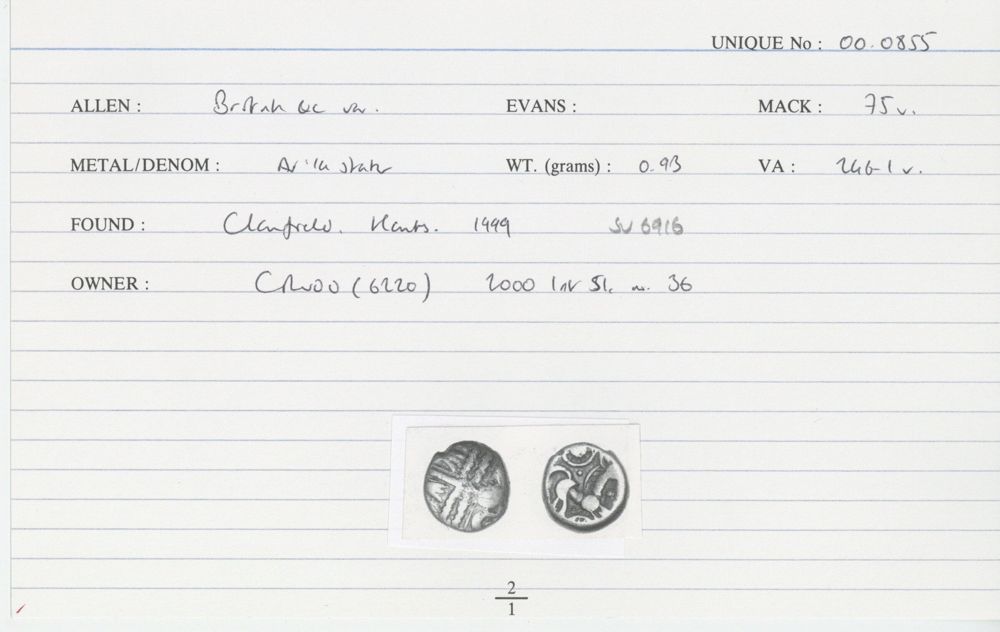 UNIQUE No : 00.0855
ALLEN : British QC var. EVANS : MACK : 75 v.
METAL/DENOM : AV 1/4 stater WT. (grams) : 0.93 VA : 246-1 v.
FOUND : Clanfield. Hants. 1999 SU 6916
OWNER : (6220) 2000 36
2
1